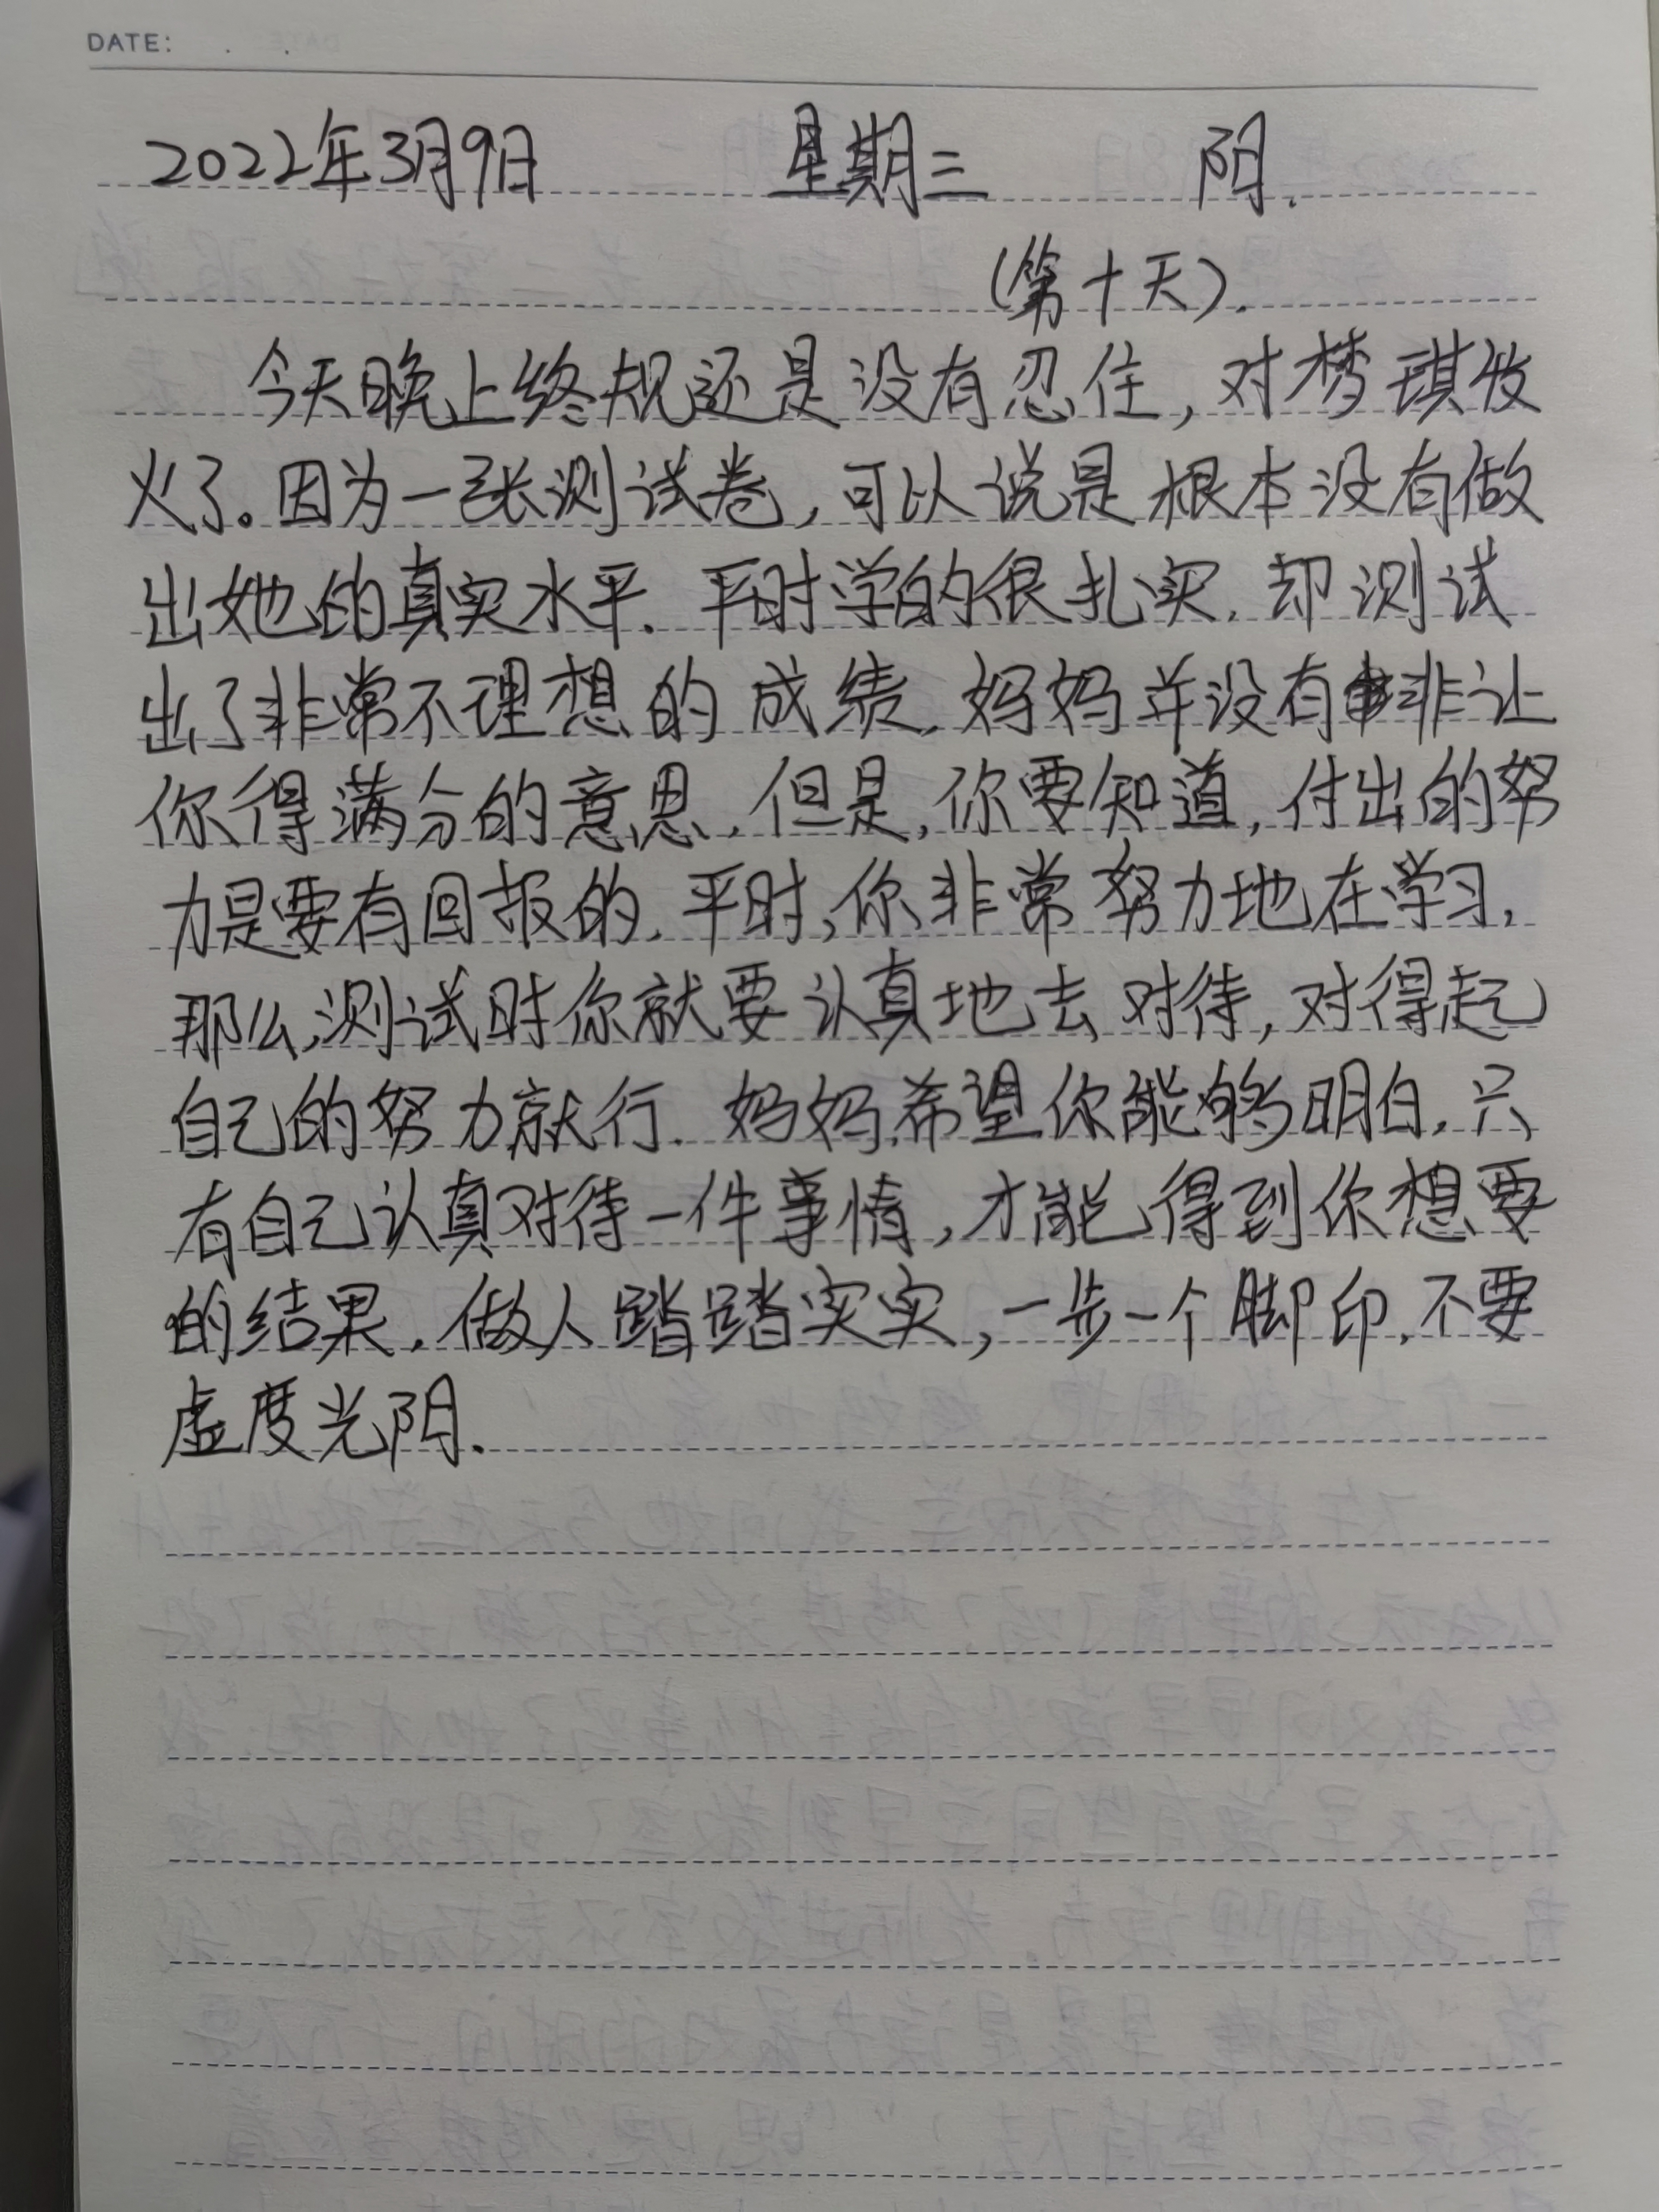 DATE: . .
2022年3月9日 星期三 阴.
(第十天).
今天晚上终规还是没有忍住,对梦琪发
火了。因为一张测试卷,可以说是根本没有做
出她的真实水平.平时学的很扎实.却测试
出了非常不理想的成绩.妈妈并没有非让
你得满分的意思.但是,你要知道,付出的努
力是要有回报的.平时,你非常努力地在学习,
那么,测试时你就要认真地去对待,对得起
自己的努力就行.妈妈希望你能够明白.只
有自己认真对待一件事情,才能得到你想要
的结果.做人踏踏实实,一步一个脚印.不要
虚度光阴.